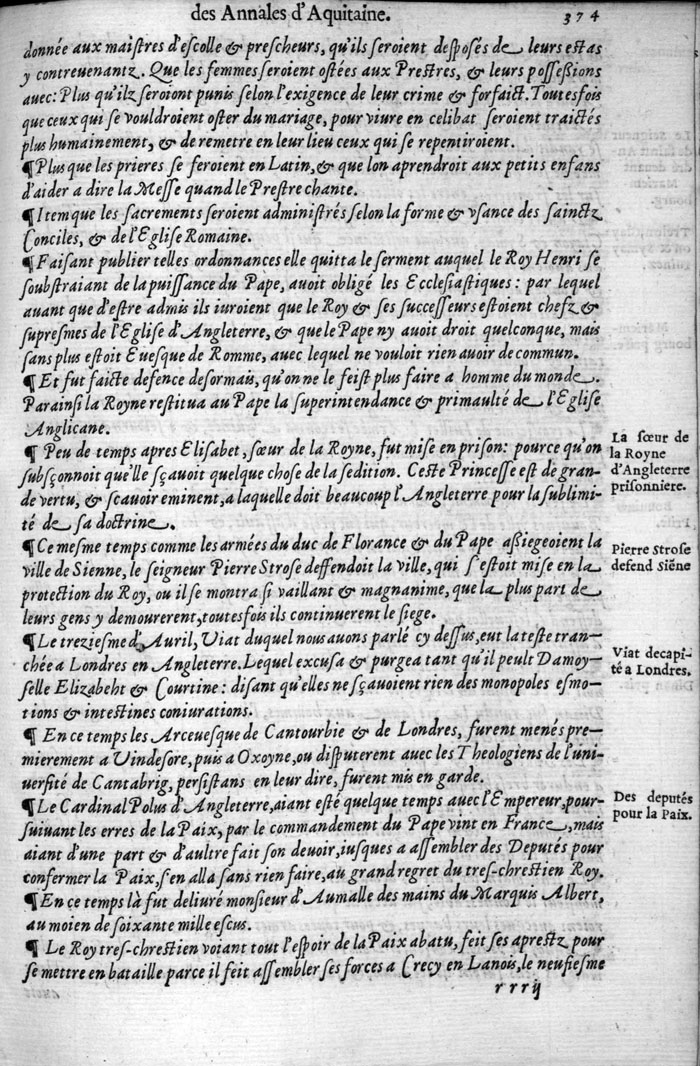 des Annales d'Aquitaine.
374
donnée aux maistres d'escolle & prescheurs, qu'ils seroient desposés de leurs estas
y contreuenantz. Que les femmes seroient ostées aux Prestres, & leurs possessions
auec: Plus qu'ilz seroiont punis selon l'exigence de leur crime & forfaict. Toutesfois
que ceux qui se vouldroient oster du mariage, pour viure en celibat seroient traictés
plus humainement, & de remetre en leur lieu ceux qui se repentiroient.
¶ Plus que les prieres se feroient en Latin, & que lon aprendroit aux petits enfans
d'aider a dire la Messe quand le Prestre chante.
¶ Item que les sacrements seroient administrés selon la forme & vsance des sainctz
Conciles, & de l'Eglise Romaine.
¶ Faisant publier telles ordonnances elle quitta le serment auquel le Roy Henri se
soubstraiant de la puissance du Pape, auoit obligé les Ecclesiastiques: par lequel
auant que d'estre admis ils iuroient que le Roy & ses successeurs estoient chefz &
supresmes de l'Eglise d'Angleterre, & que le Pape ny auoit droit quelconque, mais
sans plus estoit Euesque de Romme, auec lequel ne vouloit rien auoir de commun.
¶ Et fut faicte defence desormais, qu'on ne le feist plus faire a homme du monde.
Parainsi la Royne restitua au Pape la superintendance & primaulté de l'Eglise
Anglicane.
¶ Peu de temps apres Elisabet, sœur de la Royne, fut mise en prison: pource qu'on
subsçonnoit qu'elle sçauoit quelque chose de la sedition. Ceste Princesse est de gran-
de vertu, & scauoir eminent, a laquelle doit beaucoup l'Angleterre pour la sublimi-
té de sa doctrine.
La sœur de
la Royne
d'Angleterre
prisonniere.
¶ Ce mesme temps comme les armées du duc de Florance & du Pape assiegeoient la
ville de Sienne, le seigneur Pierre Strose deffendoit la ville, qui s'estoit mise en la
protection du Roy, ou il se montra si vaillant & magnanime, que la plus part de
leurs gens y demourerent, toutesfois ils continuerent le siege.
Pierre Strose
defend Siēne
¶ Le treziesme d'Auril, Viat duquel nous auons parlé cy dessus, eut la teste tran-
chée a Londres en Angleterre. Lequel excusa & purgea tant qu'il peult Damoy-
selle Elizabeht & Courtine: disant qu'elles ne sçauoient rien des monopoles esmo-
tions & intestines coniurations.
Viat decapi-
té a Londres.
¶ En ce temps les Arceuesque de Cantourbie & de Londres, furent menés pre-
mierement a Vindesore, puis a Oxoyne, ou disputerent auec les Theologiens de l'uni-
uersité de Cantabrig, persistans en leur dire, furent mis en garde.
¶ Le Cardinal Polus d'Angleterre, aiant esté quelque temps auec l'Empereur, pour-
suiuant les erres de la Paix, par le commandement du Pape vint en France, mais
aiant d'une part & d'aultre fait son deuoir, iusques a assembler des Deputés pour
confermer la Paix, s'en alla sans rien faire, au grand regret du tres-chrestien Roy.
Des deputés
pour la Paix.
¶ En ce temps là fut deliuré monsieur d'Aumalle des mains du Marquis Albert,
au moien de soixante mille escus.
¶ Le Roy tres-chrestien voiant tout l'espoir de la Paix abatu, feit ses aprestz pour
se mettre en bataille parce il feit assembler ses forces a Crecy en Lanois, le neufiesme
rrrij